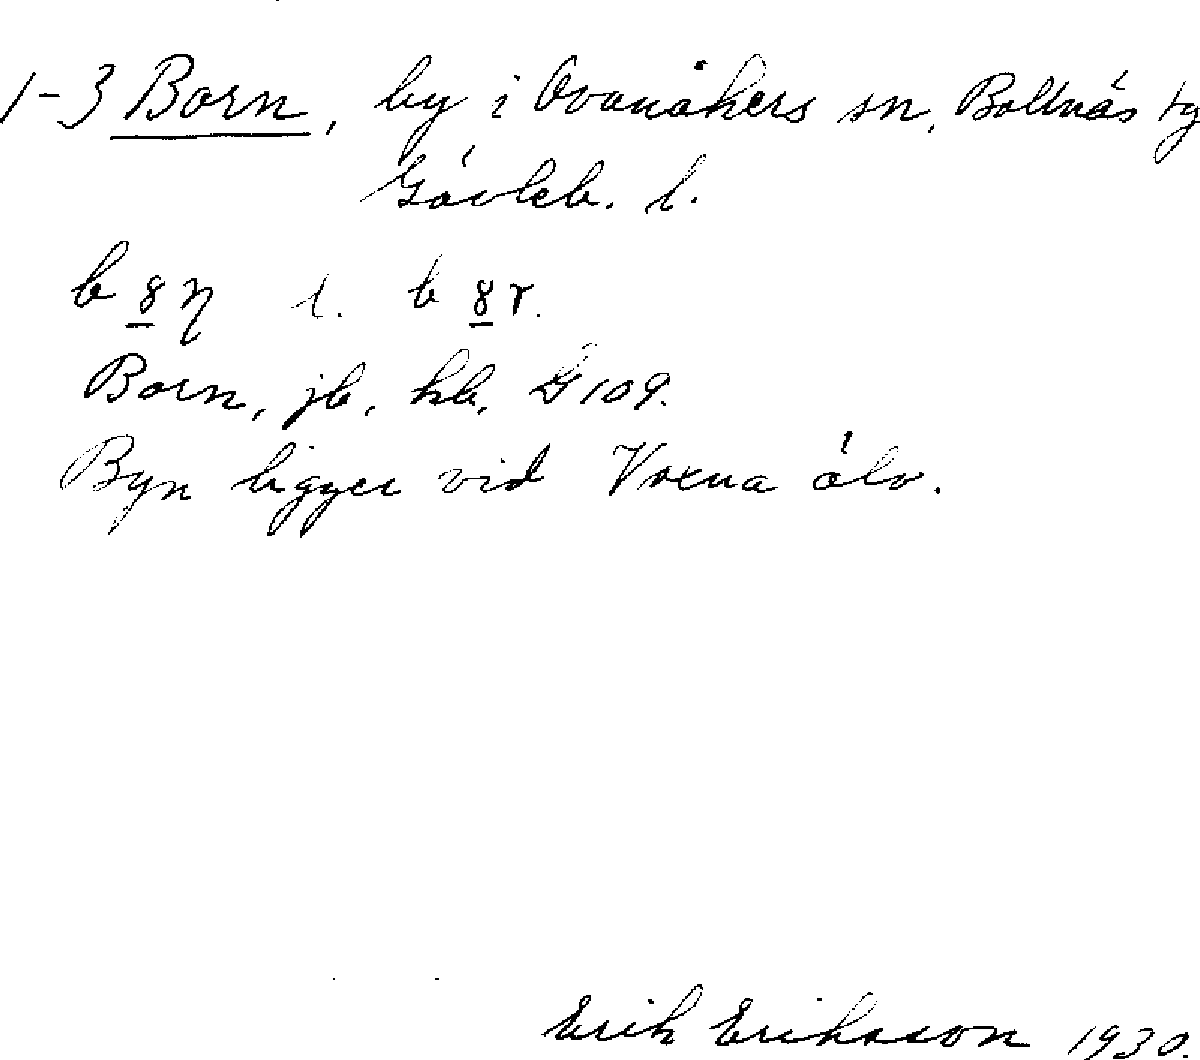 1-3 Born, by i Ovanåkers sn, Bollnäs tg
Gävleb. l.
b 8 η l. b 8 r.
Born, jb, kb, G 109.
Byn ligger vid Voxna älv.
Erik Eriksson 1930